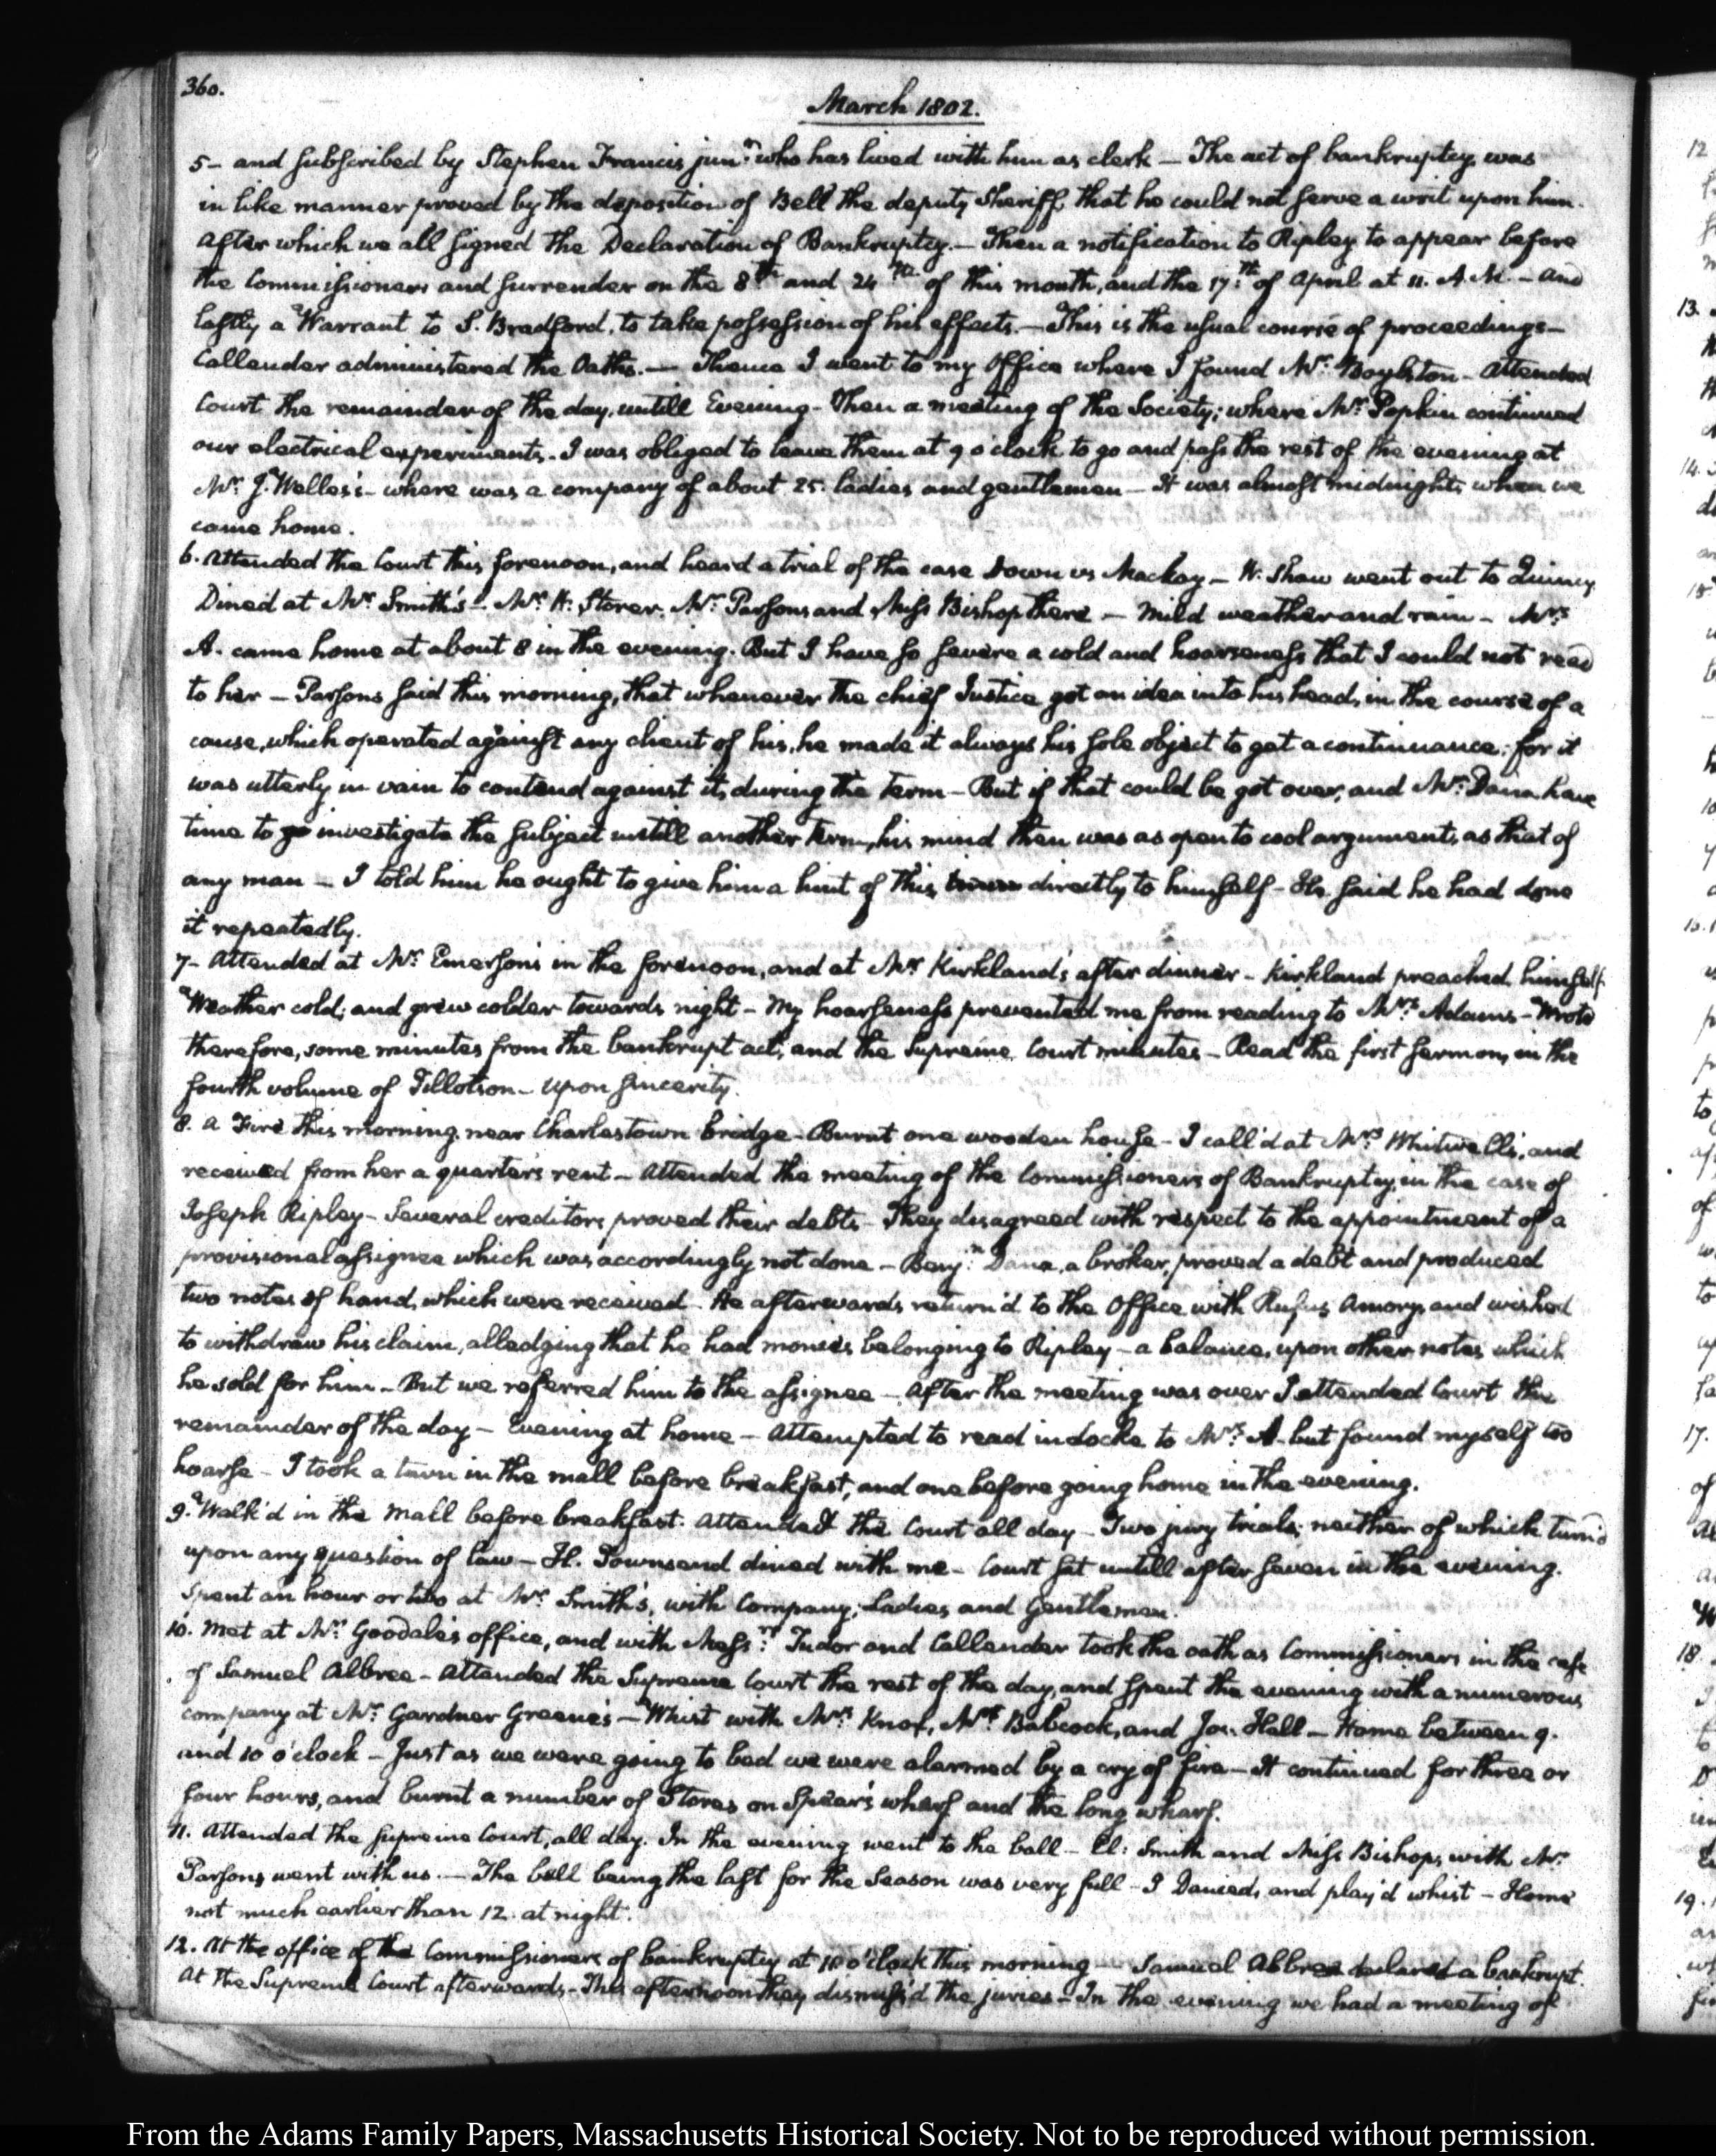 360.
March 1802.
5– and subscribed by Stephen Francis junr. who has lived with him as clerk — The act of bankruptcy was
in like manner proved by the deposition of Bell the deputy Sheriff, that he could not serve a writ upon him.
After which we all signed the Declaration of Bankruptcy.— Then a notification to Ripley to appear before
the Commissioners and surrender on the 8th and 24th of this month, and the 17th of April at 11. A.M. – and
lastly a Warrant to S. Bradford, to take possession of his effects.— This is the usual course of proceedings—
Callender administered the Oaths.— Thence I went to my Office where I found Mr. Boylston – Attended
Court the remainder of the day, untill Evening – Then a meeting of the Society; where Mr. Popkin continued
our electrical experiments. I was obliged to leave them at 9 o'clock to go and pass the rest of the evening at
Mr. J. Welles's – where was a company of about 25. ladies and gentlemen — It was almost midnight, when we
came home.
6. Attended the Court this forenoon, and heard a trial of the case Down vs Mackay – W. Shaw went out to Quincy
Dined at Mr. Smith's – Mr. H. Storer. Mr. Parsons and Miss Bishop there — Mild weather and rain – Mrs
A. came home at about 8 in the evening. But I have so severe a cold and hoarseness that I could not read
to her – Parsons said this morning, that whenever the chief Justice got an idea into his head, in the course of a
cause, which operated against any client of his, he made it always his sole object to get a continuance; for it
was utterly in vain to contend against it, during the term – But if that could be got over, and Mr. Dana have
time to investigate the subject untill another term, his mind then was as open to cool argument, as that of
any man – I told him he ought to give him a hint of this directly to himself – He said he had done
it repeatedly.
7– Attended at Mr. Emerson's in the forenoon, and at Mr. Kirkland's after dinner – Kirkland preached himself.
Weather cold; and grew colder towards night – My hoarseness prevented me from reading to Mrs. Adams – Wrote
therefore, some minutes from the bankrupt act, and the Supreme Court minutes – Read the first sermon, in the
fourth volume of Tillotson – upon sincerity.
8. A Fire this morning, near Charlestown bridge – Burnt one wooden house – I call'd at Mrs Whitwell's, and
received from her a quarter's rent – Attended the meeting of the Commissioners of Bankruptcy, in the case of
Joseph Ripley – Several creditors proved their debts – They disagreed with respect to the appointment of a
provisional assignee which was accordingly not done – Benjn. Dana, a broker, proved a debt and produced
two notes of hand, which were received – He afterwards return'd to the Office with Rufus Amory, and wished
to withdraw his claim, alledging that he had monies belonging to Ripley – a balance, upon other notes, which
he sold for him – But we referred him to the assignee – After the meeting was over I attended Court the
remainder of the day – Evening at home – Attempted to read in Locke to Mrs. A– but found myself too
hoarse – I took a turn in the mall before breakfast, and one before going home in the evening.
9. Walk'd in the Mall before breakfast. Attended the Court all day – Two jury trials; neither of which turn'd
upon any question of law – H. Townsend dined with me – Court sat untill after seven in the evening.
Spent an hour or two at Mr. Smith's, with Company; Ladies and Gentlemen.
10. Met at Mr. Goodale's office, and with Messrs. Tudor and Callender took the oath as Commissioners in the case
of Samuel Albree – Attended the Supreme Court the rest of the day, and spent the evening with a numerous
company at Mr. Gardner Greene's – Whist with Mrs. Knox, Mrs. Babcock, and Jos. Hall – Home between 9.
and 10 o'clock – Just as we were going to bed we were alarmed by a cry of fire – It continued for three or
four hours, and burnt a number of Stores on Spear's wharf and the long wharf.
11. Attended the Supreme Court, all day. In the evening went to the ball – Smith and Miss Bishop, with Mr.
Parsons went with us.— The ball being the last for the season was very full – I Danced, and play'd whist – Home
not much earlier than 12. at night.
12. At the office of the Commissioners of bankruptcy at 10 o'clock this morning — Samuel Albree declared a bankrupt.
At the Supreme Court afterwards – This afternoon they dismiss'd the juries – In the evening we had a meeting of
From the Adams Family Papers, Massachusetts Historical Society. Not to be reproduced without permission.